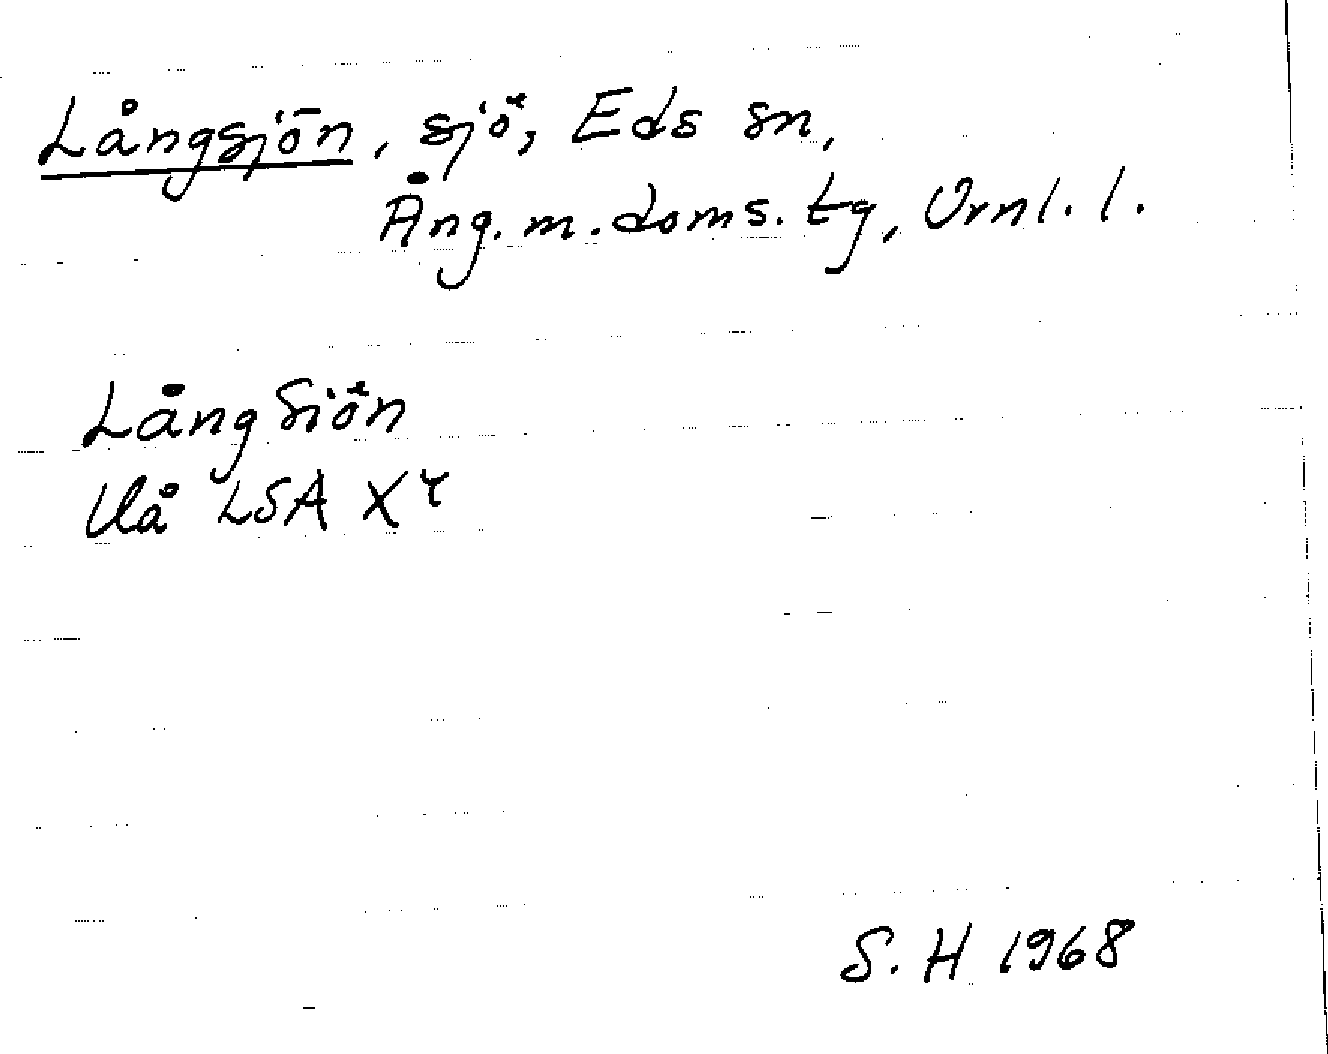 Långsjön, sjö, Eds sn,
Ång. m. doms. tg, Vrnl. l.
Lång Siön
Uå LSA X⁴
S. H 1968